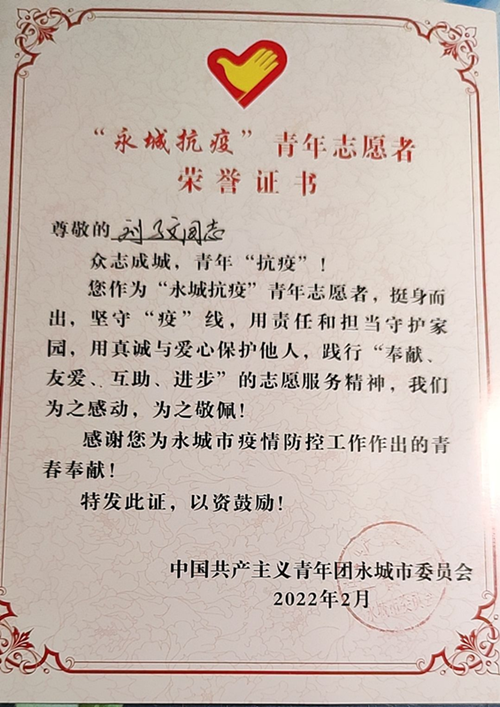 “永城抗疫”青年志愿者
荣誉证书
尊敬的 刘 文同志
众志成城，青年“抗疫”！
您作为“永城抗疫”青年志愿者，挺身而
出，坚守“疫”线，用责任和担当守护家
园，用真诚与爱心保护他人，践行“奉献、
友爱、互助、进步”的志愿服务精神，我们
为之感动，为之敬佩！
感谢您为永城市疫情防控工作作出的青
春奉献！
特发此证，以资鼓励！
中国共产主义青年团永城市委员会
2022年2月
永城市委员会